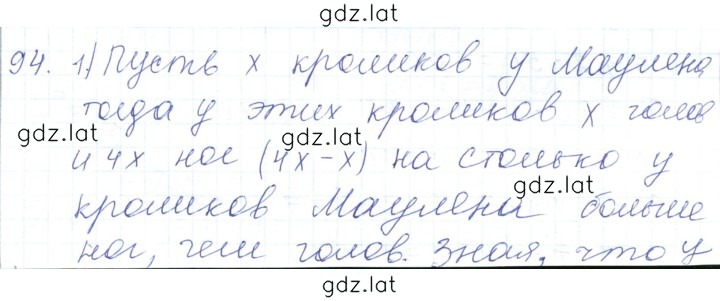 gdz.lat
94. 1) Пусть x кроликов у Маулена,
тогда у этих кроликов x голов
gdz.lat
gdz.lat
и 4x ног (4x-x) на столько у
gdz.lat
кроликов Маулена больше
gdz.lat
ног, чем голов. Зная, что у
gdz.lat